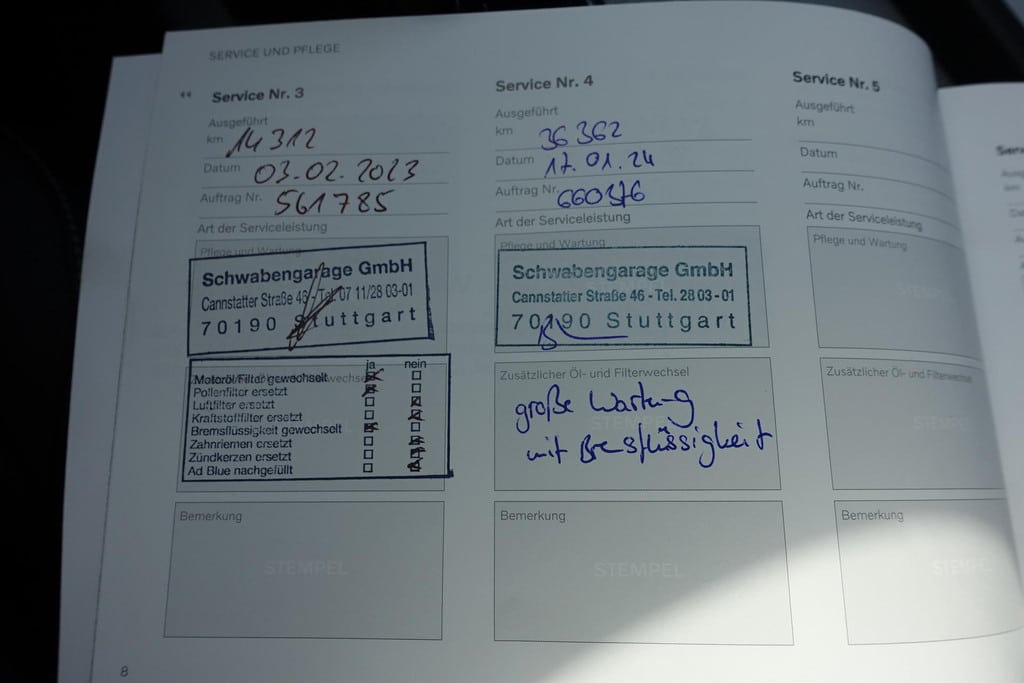 SERVICE UND PFLEGE
Service Nr. 3
Ausgeführt
km 14 312
Datum 03.02.2023
Auftrag Nr. 561785
Art der Serviceleistung
Pflege und Wartung
Schwabengarage GmbH
Cannstatter Straße 46 - Tel. 07 11/28 03-01
70190 Stuttgart
ja nein
Motoröl/Filter gewechselt
Pollenfilter ersetzt
Luftfilter ersetzt
Kraftstoffilter ersetzt
Bremsflüssigkeit gewechselt
Zahnriemen ersetzt
Zündkerzen ersetzt
Ad Blue nachgefüllt
Bemerkung
STEMPEL
Service Nr. 4
Ausgeführt
km 36 362
Datum 17.01.24
Auftrag Nr. 660376
Art der Serviceleistung
Pflege und Wartung
Schwabengarage GmbH
Cannstatter Straße 46 - Tel. 28 03-01
70190 Stuttgart
Zusätzlicher Öl- und Filterwechsel
große Wartung
mit Bresflüssigkeit
Bemerkung
STEMPEL
Service Nr. 5
Ausgeführt
km
Datum
Auftrag Nr.
Art der Serviceleistung
Pflege und Wartung
Zusätzlicher Öl- und Filterwechsel
Bemerkung
8